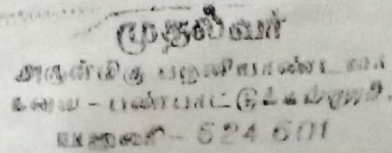 முதல்வர்
அருள்மிகு பழனியாண்டவர்
கலை - பண்பாட்டுக் கல்லூரி,
பழனி - 624 601